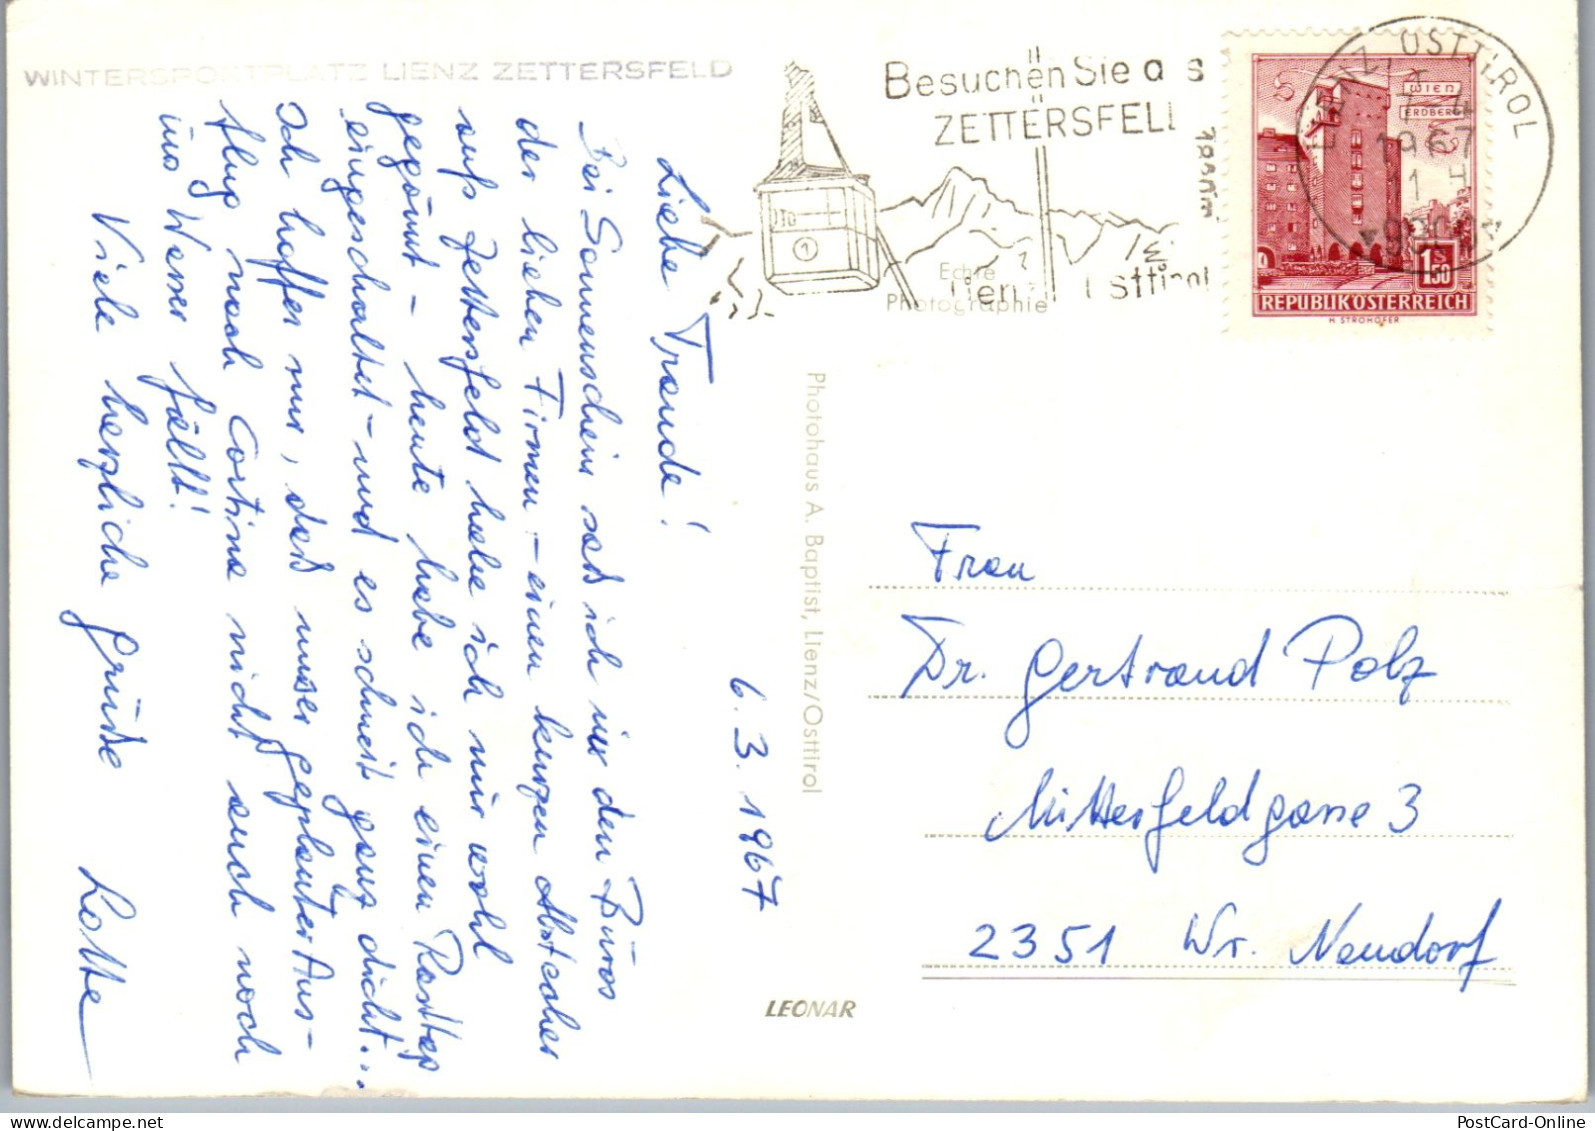 WINTERSPORTPLATZ LIENZ ZETTERSFELD
Liebe Traude!
Bei Sonnenschein saß ich in den Büros
der lieben Firmen – einen kurzen Abstecher
aufs Zettersfeld habe ich mir wohl
gegönnt – heute habe ich einen Rasttag
eingeschaltet – und es schneit ganz dicht...
Ich hoffe nur, daß unser geplanter Aus-
flug nach Cortina nicht auch noch
ins Wasser fällt!
Viele herzliche Grüße
Lotte
6.3.1967
Besuchen Sie das
ZETTERSFELD
Lienz Osttirol
Echte
Photographie
Photohaus A. Baptist, Lienz/Osttirol
LEONAR
LIENZ, OSTTIROL
1967
9900
WIEN
ERDBERG
1.50
REPUBLIK ÖSTERREICH
H. STROHOFER
Frau
Dr. Gertraud Polz
Mitterfeldgasse 3
2351 Wr. Neudorf
PostCard-Online